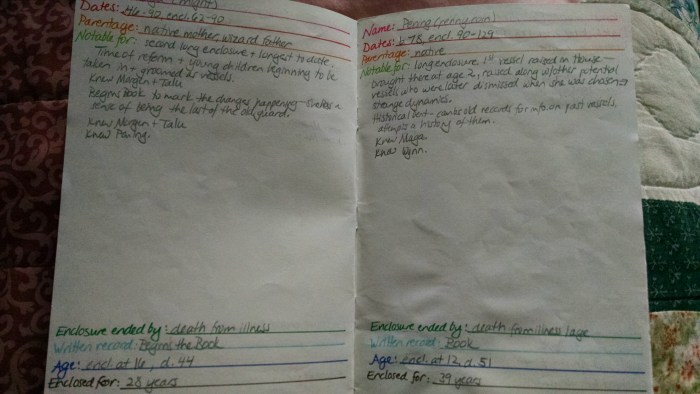 night)
Dates: 46-90, encl. 62-90
Parentage: native mother, wizard father
Notable for: second long enclosure + longest to date,
Time of reform + young children beginning to be
taken in + groomed as vessels.
Knew Morgen + Talu
Begins book to mark the changes happening - she has a
sense of being the last of the old guard.
Knew Morgen + Talu
Knew Pening.
Enclosure ended by: death from illness
Written record: Begins the Book
Age: encl. at 16, d. 44
Enclosed for: 28 years
Name: Pening
Dates: b 78, encl. 90-129
Parentage: native
Notable for: long enclosure, 1st vessel raised in House -
brought there at age 2, raised along w/other potential
vessels who were later dismissed when she was chosen
strange dynamics.
Historical bent - combs old records for info on past vessels,
attempts a history of them.
Knew Maga.
Knew
Enclosure ended by: death from illness/age
Written record: Book
Age: encl. at 12, d. 51
Enclosed for: 39 years